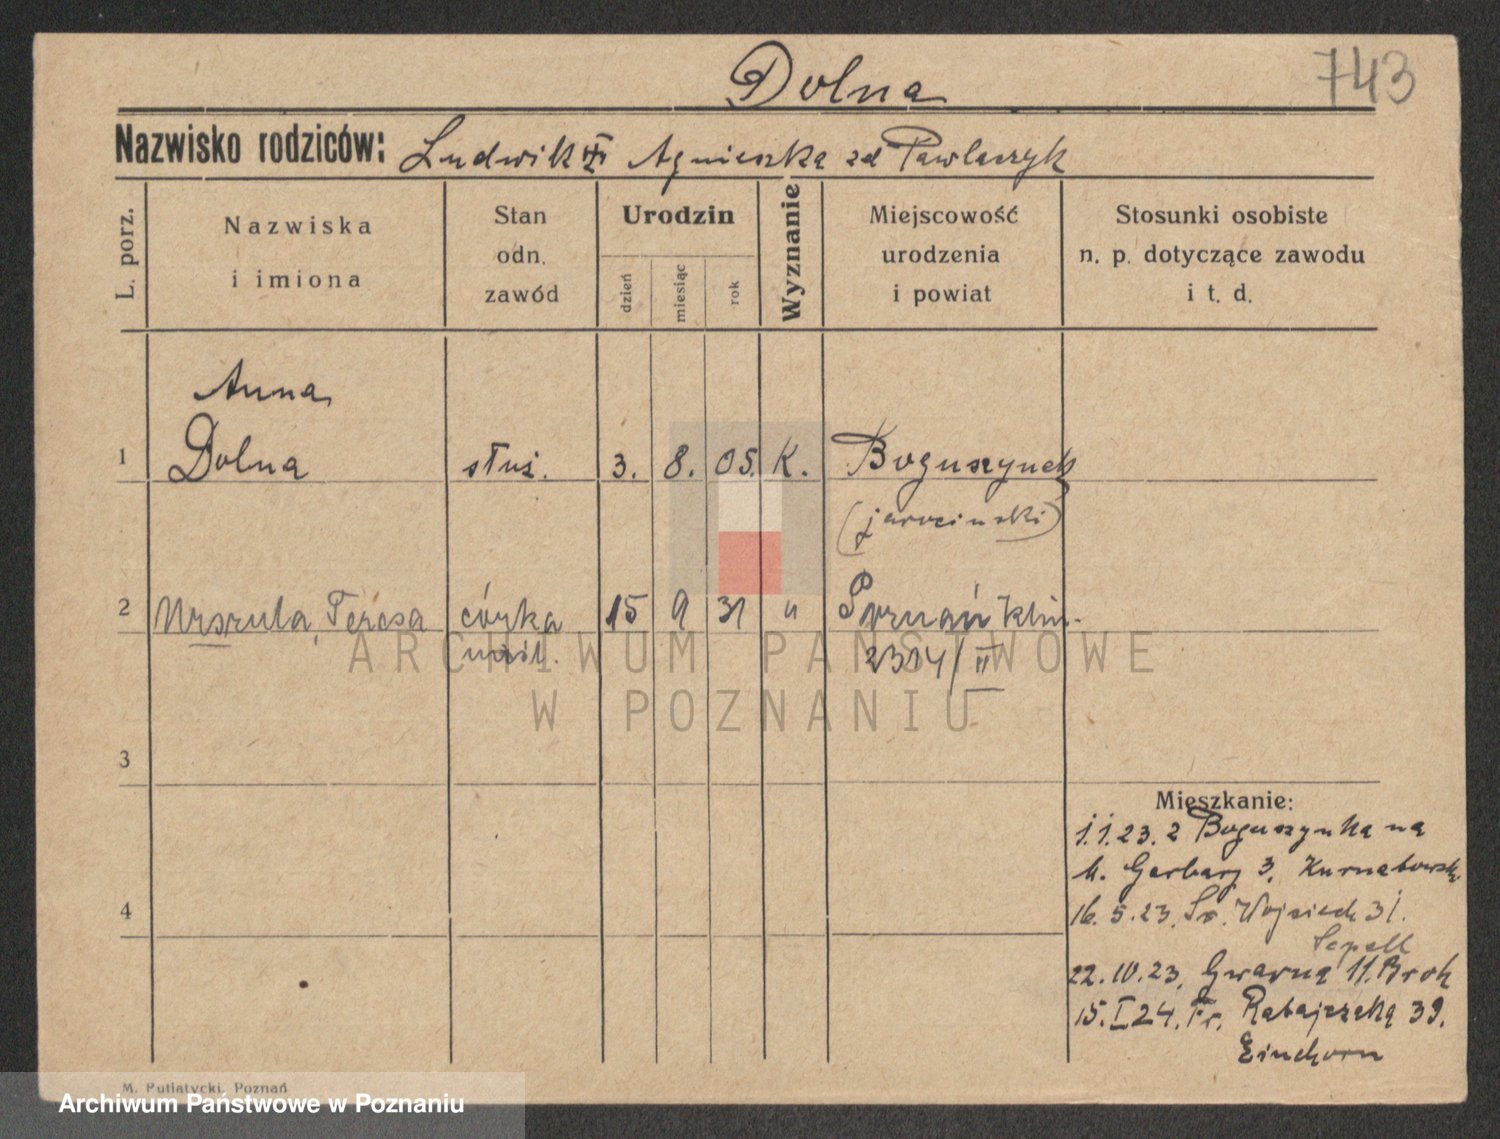 Dolna
743
Nazwisko rodziców: Ludwik Agnieszka zd Pawlaczyk
L. porz.
Nazwiska
i imiona
Stan
odn.
zawód
Urodzin
dzień
miesiąc
rok
Wyznanie
Miejscowość
urodzenia
i powiat
Stosunki osobiste
n. p. dotyczące zawodu
i t. d.
Anna
1 Dolna służ. 3. 8. 05. K. Boguszynek
(jarociński)
2 Urszula, Teresa córka 15 9 31 " Poznań klin.
2314/II
3
4
Mieszkanie:
1.1.23. z Boguszynka na
M. Garbary 3.
16. 5. 23. Św. Wojciech 31.
22. IV. 23. Gwarna 11. Brok
15. I 24. Fr. Ratajczaka 39.
Einchorn
M. Putiatycki, Poznań
ARCHIWUM PAŃSTWOWE
W POZNANIU
Archiwum Państwowe w Poznaniu